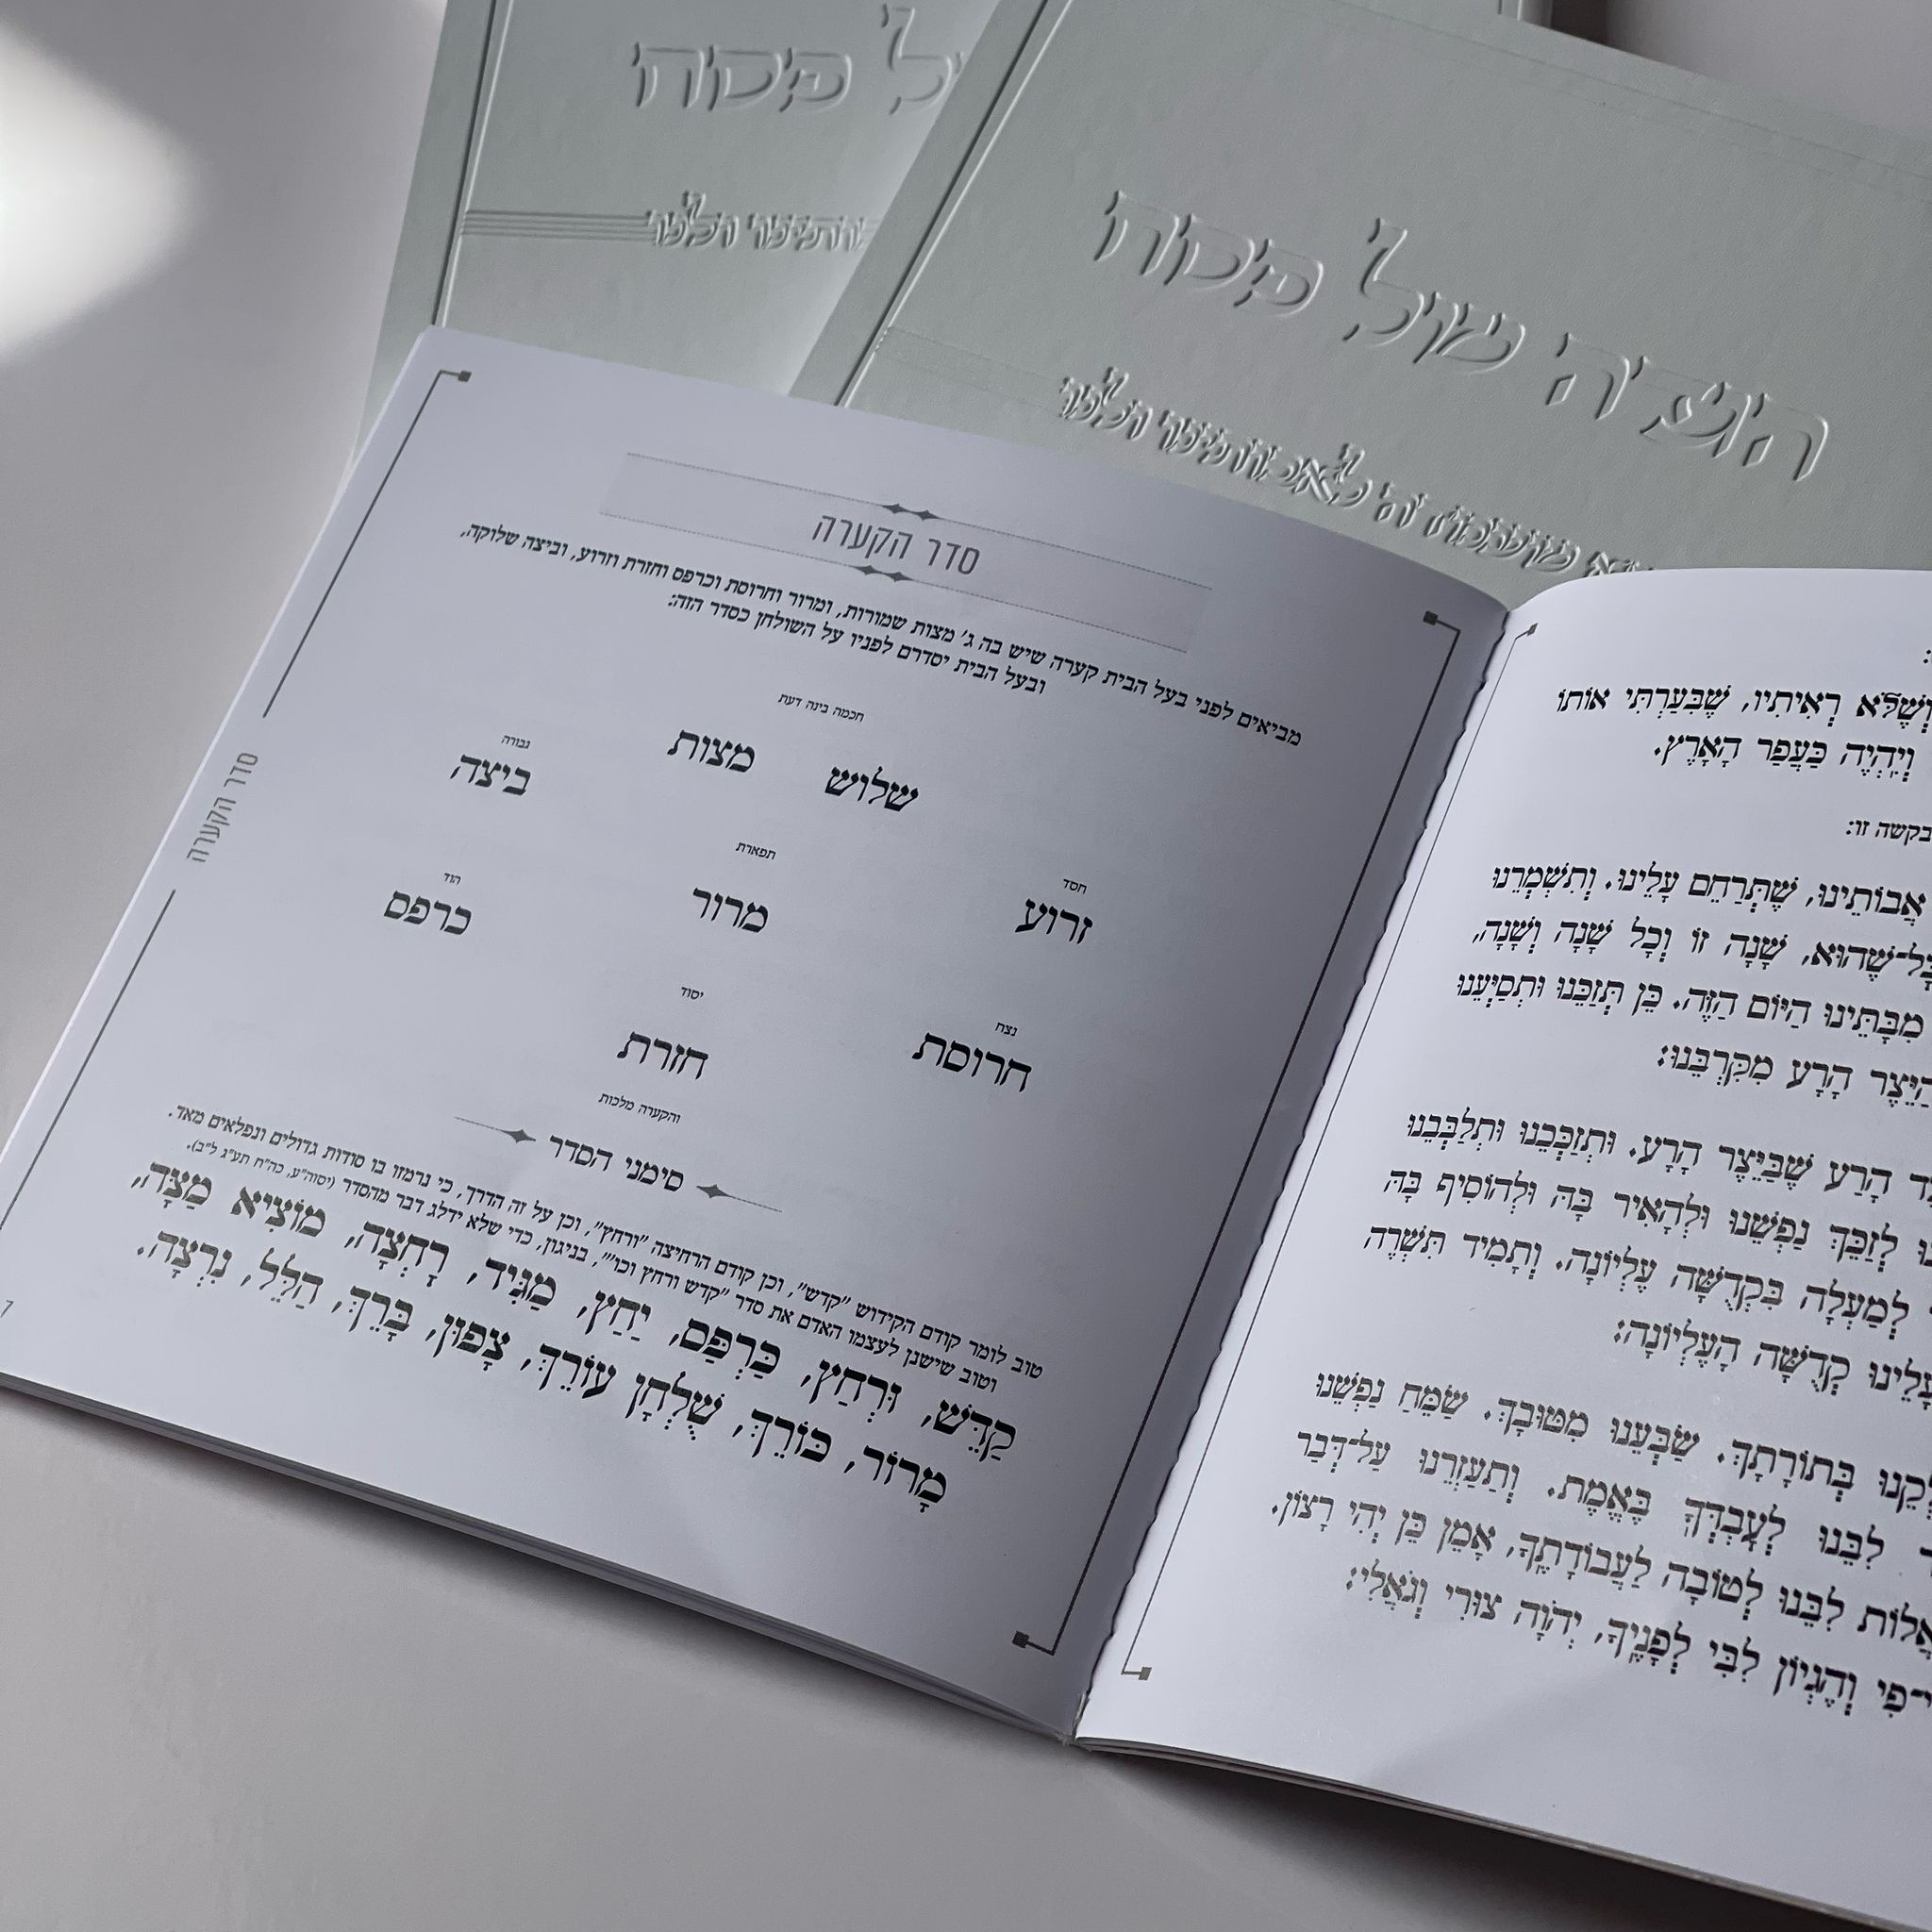 ל פסח
הגדה של פסח
סדר הקערה
מביאים לפני בעל הבית קערה שיש בה ג' מצות שמורות, ומרור וחרוסת וכרפס וחזרת וזרוע, וביצה שלוקה,
ובעל הבית יסדרם לפניו על השולחן כסדר הזה:
חכמה בינה דעת
שלוש מצות
גבורה
ביצה
חסד
זרוע
תפארת
מרור
הוד
כרפס
נצח
חרוסת
יסוד
חזרת
והקערה מלכות
סימני הסדר
טוב לומר קודם הקידוש "קדש", וכן קודם הרחיצה "ורחץ", וכן על זה הדרך, כי נרמזו בו סודות גדולים ונפלאים מאד.
וטוב שישנן לעצמו האדם את סדר "קדש ורחץ וכו'", בניגון, כדי שלא ידלג דבר מהסדר (יסוה"ע, כה"ח תע"ג ל"ב).
קַדֵּשׁ, וּרְחַץ, כַּרְפַּס, יַחַץ, מַגִּיד, רָחְצָה, מוֹצִיא מַצָּה,
מָרוֹר, כּוֹרֵךְ, שֻׁלְחָן עוֹרֵךְ, צָפוּן, בָּרֵךְ, הַלֵּל, נִרְצָה.
סדר הקערה
7
וְשֶׁלֹּא רְאִיתִיו, שֶׁבִּעַרְתִּי אוֹתוֹ
וְיִהְיֶה כַּעֲפַר הָאָרֶץ.
בקשה זו:
אֲבוֹתֵינוּ, שֶׁתְּרַחֵם עָלֵינוּ. וְתִשְׁמְרֵנוּ
כָּל־שֶׁהוּא, שָׁנָה זוֹ וְכָל שָׁנָה וְשָׁנָה,
מִבָּתֵּינוּ הַיּוֹם הַזֶּה. כֵּן תְּזַכֵּנוּ וּתְסַיְּעֵנוּ
הַיֵּצֶר הָרָע מִקִּרְבֵּנוּ:
הָרַע שֶׁבַּיֵּצֶר הָרָע. וּתְזַכְּכֵנוּ וּתְלַבְּבֵנוּ
לְזַכֵּךְ נַפְשֵׁנוּ וּלְהָאִיר בָּהּ וּלְהוֹסִיף בָּהּ
לְמַעְלָה בִּקְדֻשָּׁה עֶלְיוֹנָה. וְתָמִיד תִּשְׁרֶה
עָלֵינוּ קְדֻשָּׁה הָעֶלְיוֹנָה:
בְּתוֹרָתָךְ. שַׂבְּעֵנוּ מִטּוּבָךְ. שַׂמֵּחַ נַפְשֵׁנוּ
לִבֵּנוּ לְעָבְדְּךָ בֶּאֱמֶת. וְתַעַזְרֵנוּ עַל־דְּבַר
לִבֵּנוּ לְטוֹבָה לַעֲבוֹדָתֶךָ, אָמֵן כֵּן יְהִי רָצוֹן.
וְהֶגְיוֹן לִבִּי לְפָנֶיךָ, יְהֹוָה צוּרִי וְגֹאֲלִי: